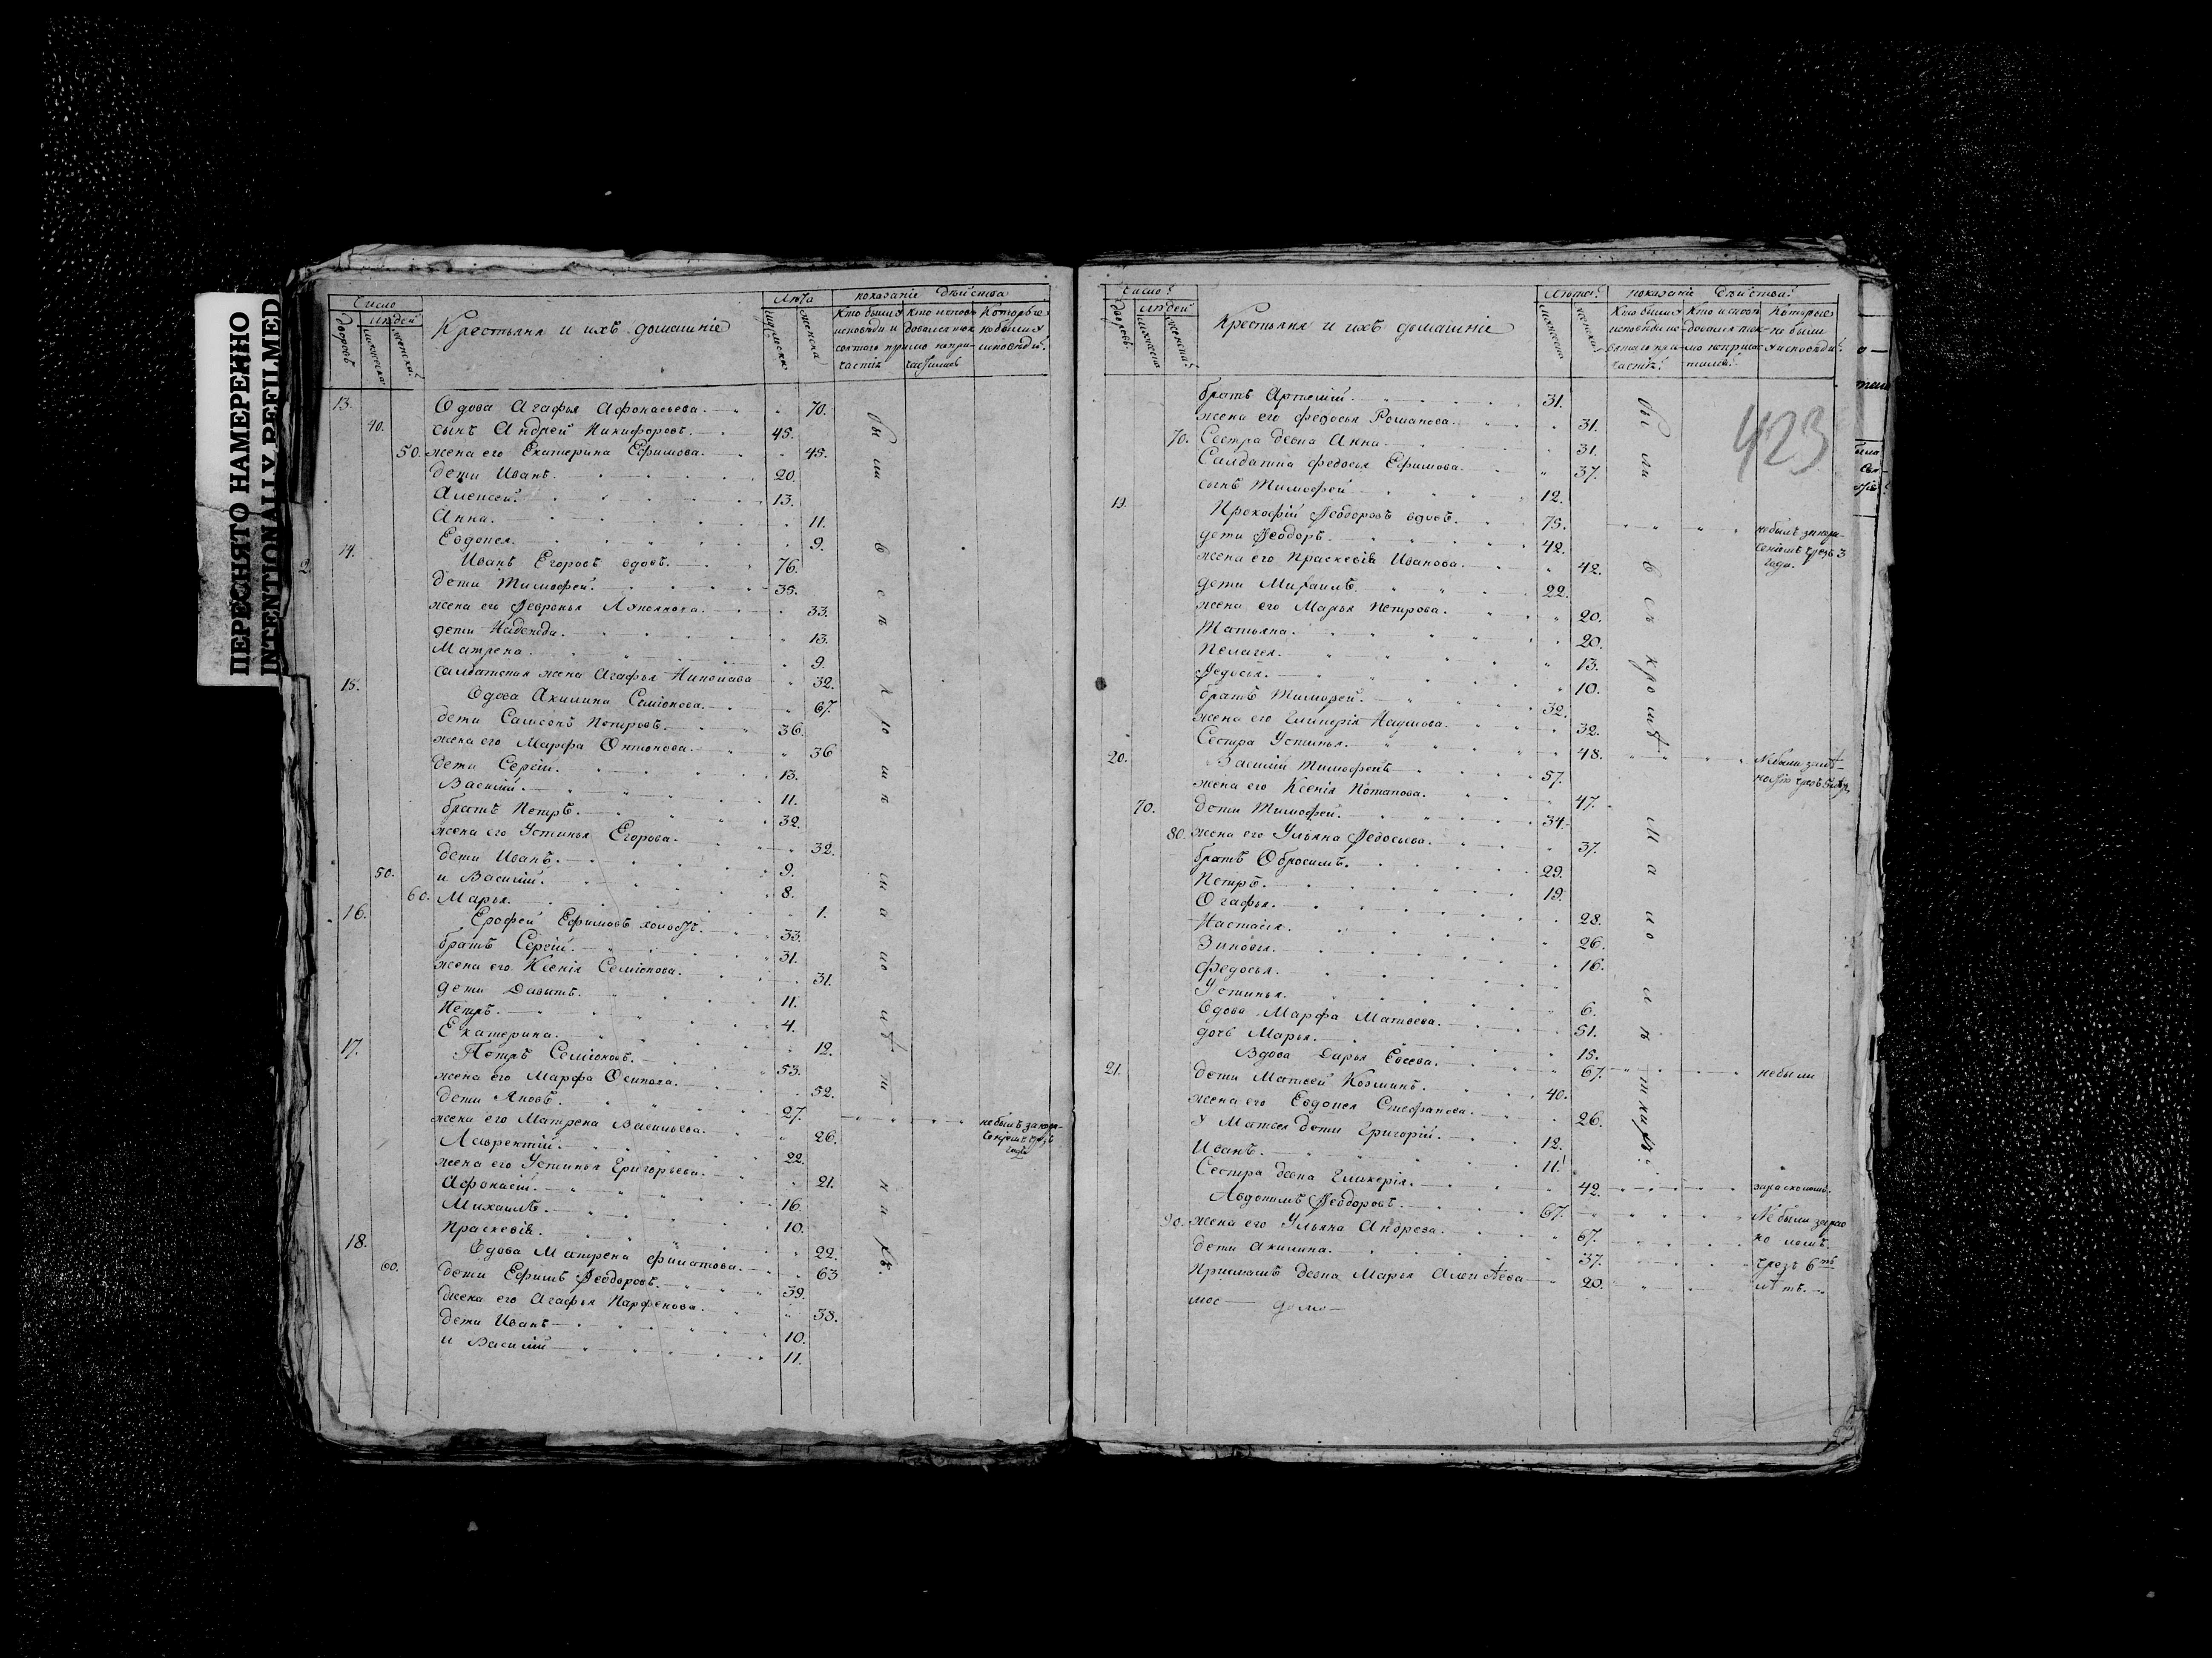 ПЕРЕСНЯТО НАМЕРЕННО
INTENTIONALLY REFILMED
Число
Лѣта
показаніе дѣйства
дворовъ
людей
мужеска
женска
Крестьяня и ихъ домашніе
Кто были у исповѣди и святого причастія
Кто исповѣдовался токмо а не причастился
Которые не были у исповѣди
13. Вдова Агафья Афонасьева. 70.
40. сынъ Андрей Никифоровъ. 45.
50. жена его Екатерина Ефимова. 45.
дети Иванъ. 20.
Алексей. 13.
Анна. 11.
Евдокея. 9.
14. Иванъ Егоровъ вдовъ. 76.
дети Тимофей. 35.
жена его Февронья 33.
дети Надежда. 13.
Матрена. 9.
салдатская жена Агафья Николаева 32.
15. Вдова Акилина Семіонова. 67.
дети Самсонъ Петровъ. 36.
жена его Марфа Онтонова. 36
дети Сергій. 13.
Василій. 11.
братъ Петръ. 32.
жена его Устинья Егорова. 32.
дети Иванъ. 9.
50. и Василій. 8.
60. Марья. 1.
16. Ерофей Ефимовъ холостъ. 33.
братъ Сергій. 31.
жена его Ксенія Семіонова. 31.
дети Давытъ. 11.
Петръ. 4.
Екатерина. 12.
17. Петръ Семіоновъ. 53.
жена его Марфа Осипова. 52.
дети Яковъ. 27. небылъ
жена его Матрена Васильева. 26.
Лаврентій. 22.
жена его Устинья Григорьева. 21.
Афонасій. 16.
Михаилъ. 10.
Праскевія. 22.
18. Вдова Матрена Филатова. 63
60. дети Ефимъ Феодоровъ. 39.
жена его Агафья Парфенова. 38.
дети Иванъ 10.
и Василій 11.
были
Число
Лѣта
показаніе дѣйства
дворовъ
людей
мужеска
женска
Крестьяня и ихъ домашніе
Кто были у исповѣди и святого причастія
Которые не были у исповѣди
423
братъ Артемій. 31.
жена его Федосья Романова. 31.
70. Сестра девка Анна. 31.
Салдатка Федосья Ефимова. 37.
сынъ Тимофей 12.
19. Прокофій Феодоровъ вдовъ. 75. небылъ
дети Феодоръ. 42.
жена его Праскевія Иванова. 42.
дети Михаилъ. 22.
жена его Марья Петрова. 20.
Татьяна. 20.
Пелагея. 13.
Федосья. 10.
братъ Тимофей. 32.
жена его Гликерія Наумова. 32.
Сестра Устинья. 48. Небыли
20. Василій Тимофеевъ 57.
жена его Ксенія Потапова. 47.
70. дети Тимофей. 34.
80. жена его Ульяна Федосьева. 37.
братъ Обросимъ. 29.
Петръ. 19.
Огафья. 28.
Настасія. 26.
Зиновья. 16.
Федосья.
Устинья. 6.
Вдова Марфа Матвеева. 51.
дочь Марья. 15.
21. Вдова Дарья Евсева. 67. небыли
дети Матвей Козминъ. 40.
жена его Евдокея Стефанова. 26.
у Матвея дети Григорій. 12.
Иванъ. 11.
Сестра девка Гликерія. 42. за расколомъ.
Авдокимъ Феодоровъ. 67. Не были за рас
90. жена его Ульяна Андрева. 67. коломъ
дети Акилина. 37. чрезъ 6ть
девка Марья Алексѣева 20. лѣтъ.
были